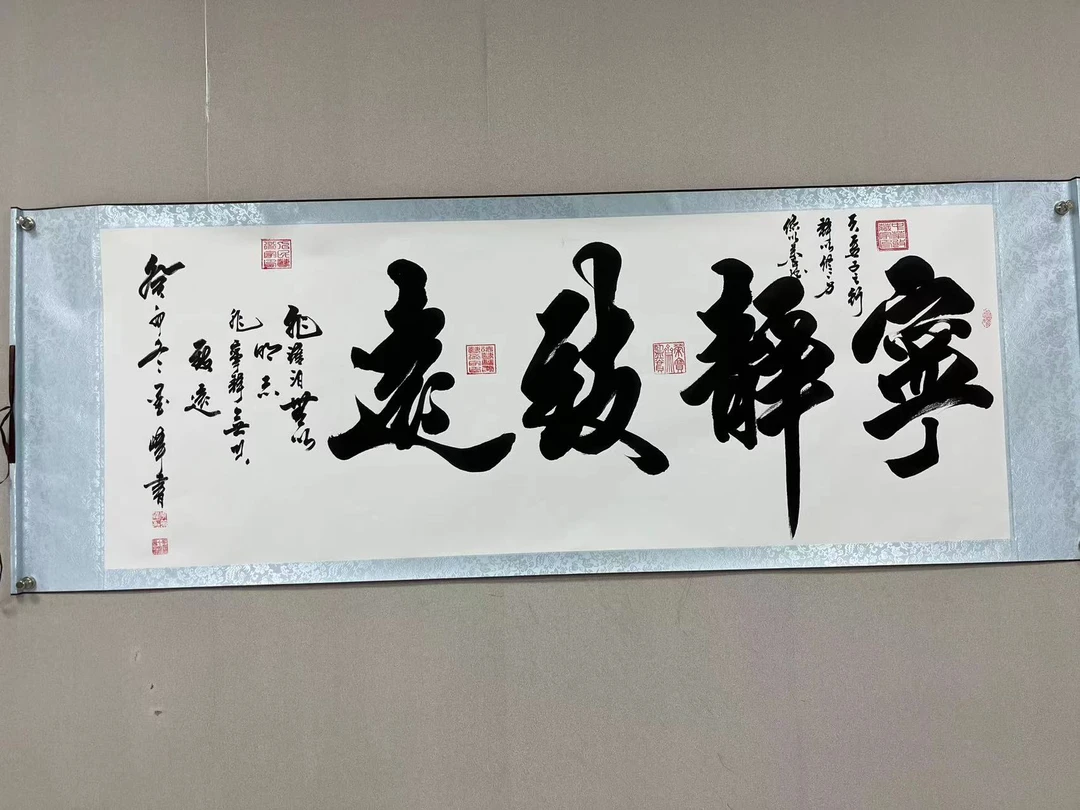 夫君子之行
靜以修身
儉以養德
寧靜致遠
非澹泊無以
明志
非寧靜無以
致遠
癸卯冬 書